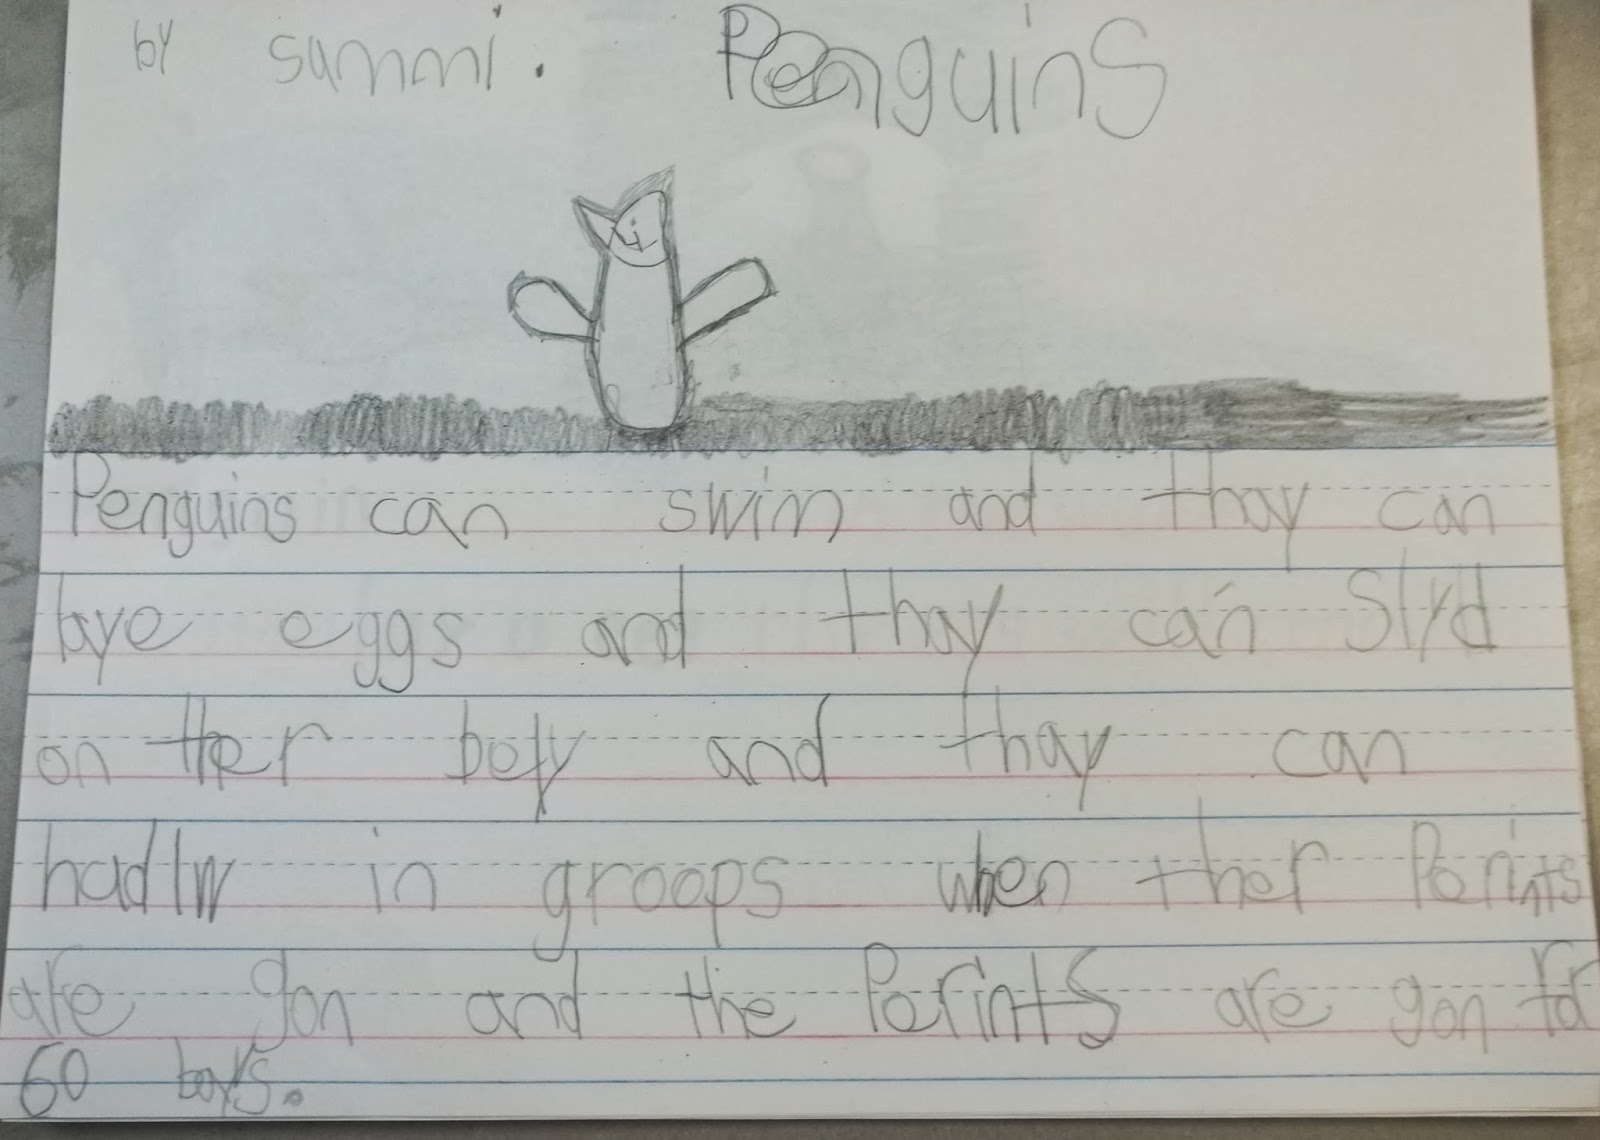 by summi. Penguins
Penguins can swim and thay can
laye eggs and thay can Slyd
on ther bely and thay can
hadlw in groops when ther Perints
are gon and the Perints are gon for
60 bays.